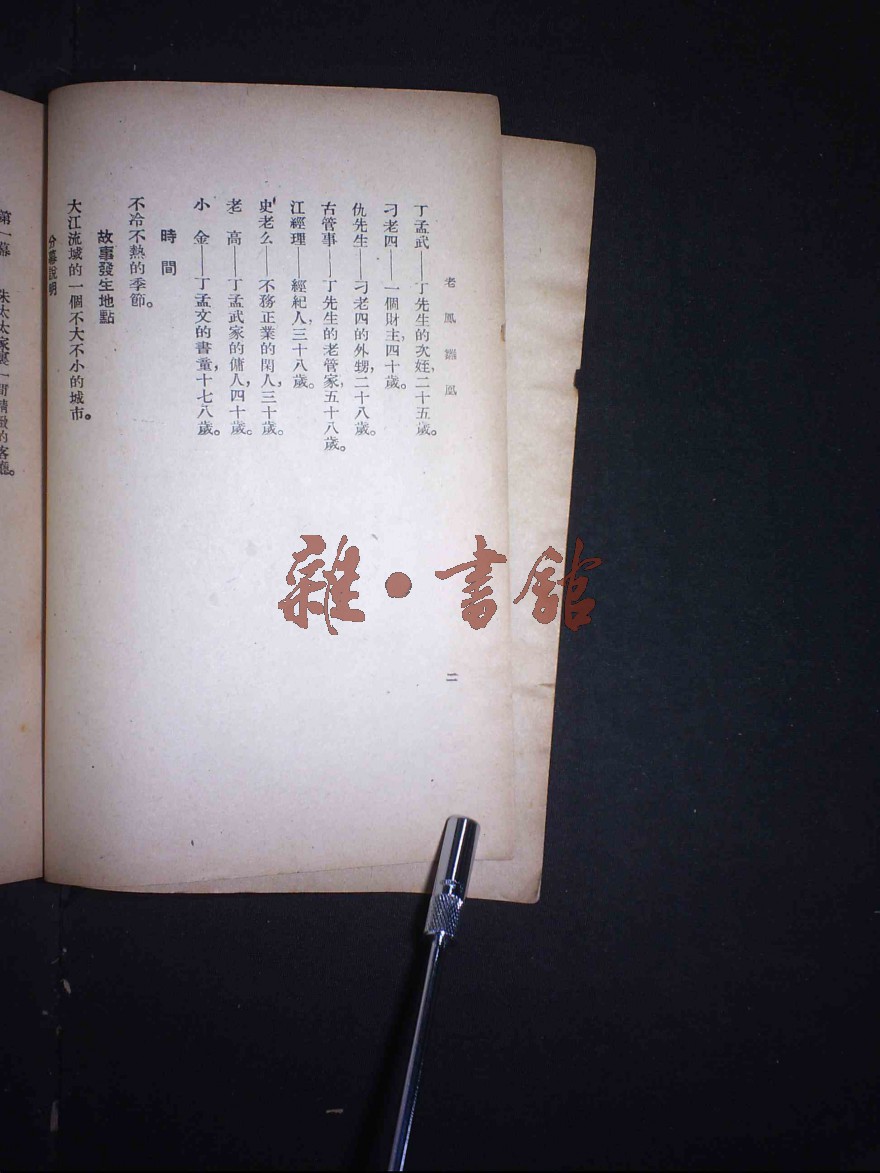 老鳳㘎凰
丁孟武——丁先生的次姪，二十五歲。
刁老四——一個財主，四十歲。
仇先生——刁老四的外甥，二十八歲。
古管事——丁先生的老管家，五十八歲。
江經理——經紀人，三十八歲。
史老么——不務正業的閑人，三十歲。
老　高——丁孟武家的傭人，四十歲。
小　金——丁孟文的書童，十七八歲。
時間
不冷不熱的季節。
故事發生地點
大江流域的一個不大不小的城市。
分幕說明
第一幕　朱太太家裏一間精緻的客廳。
二
雜·書館